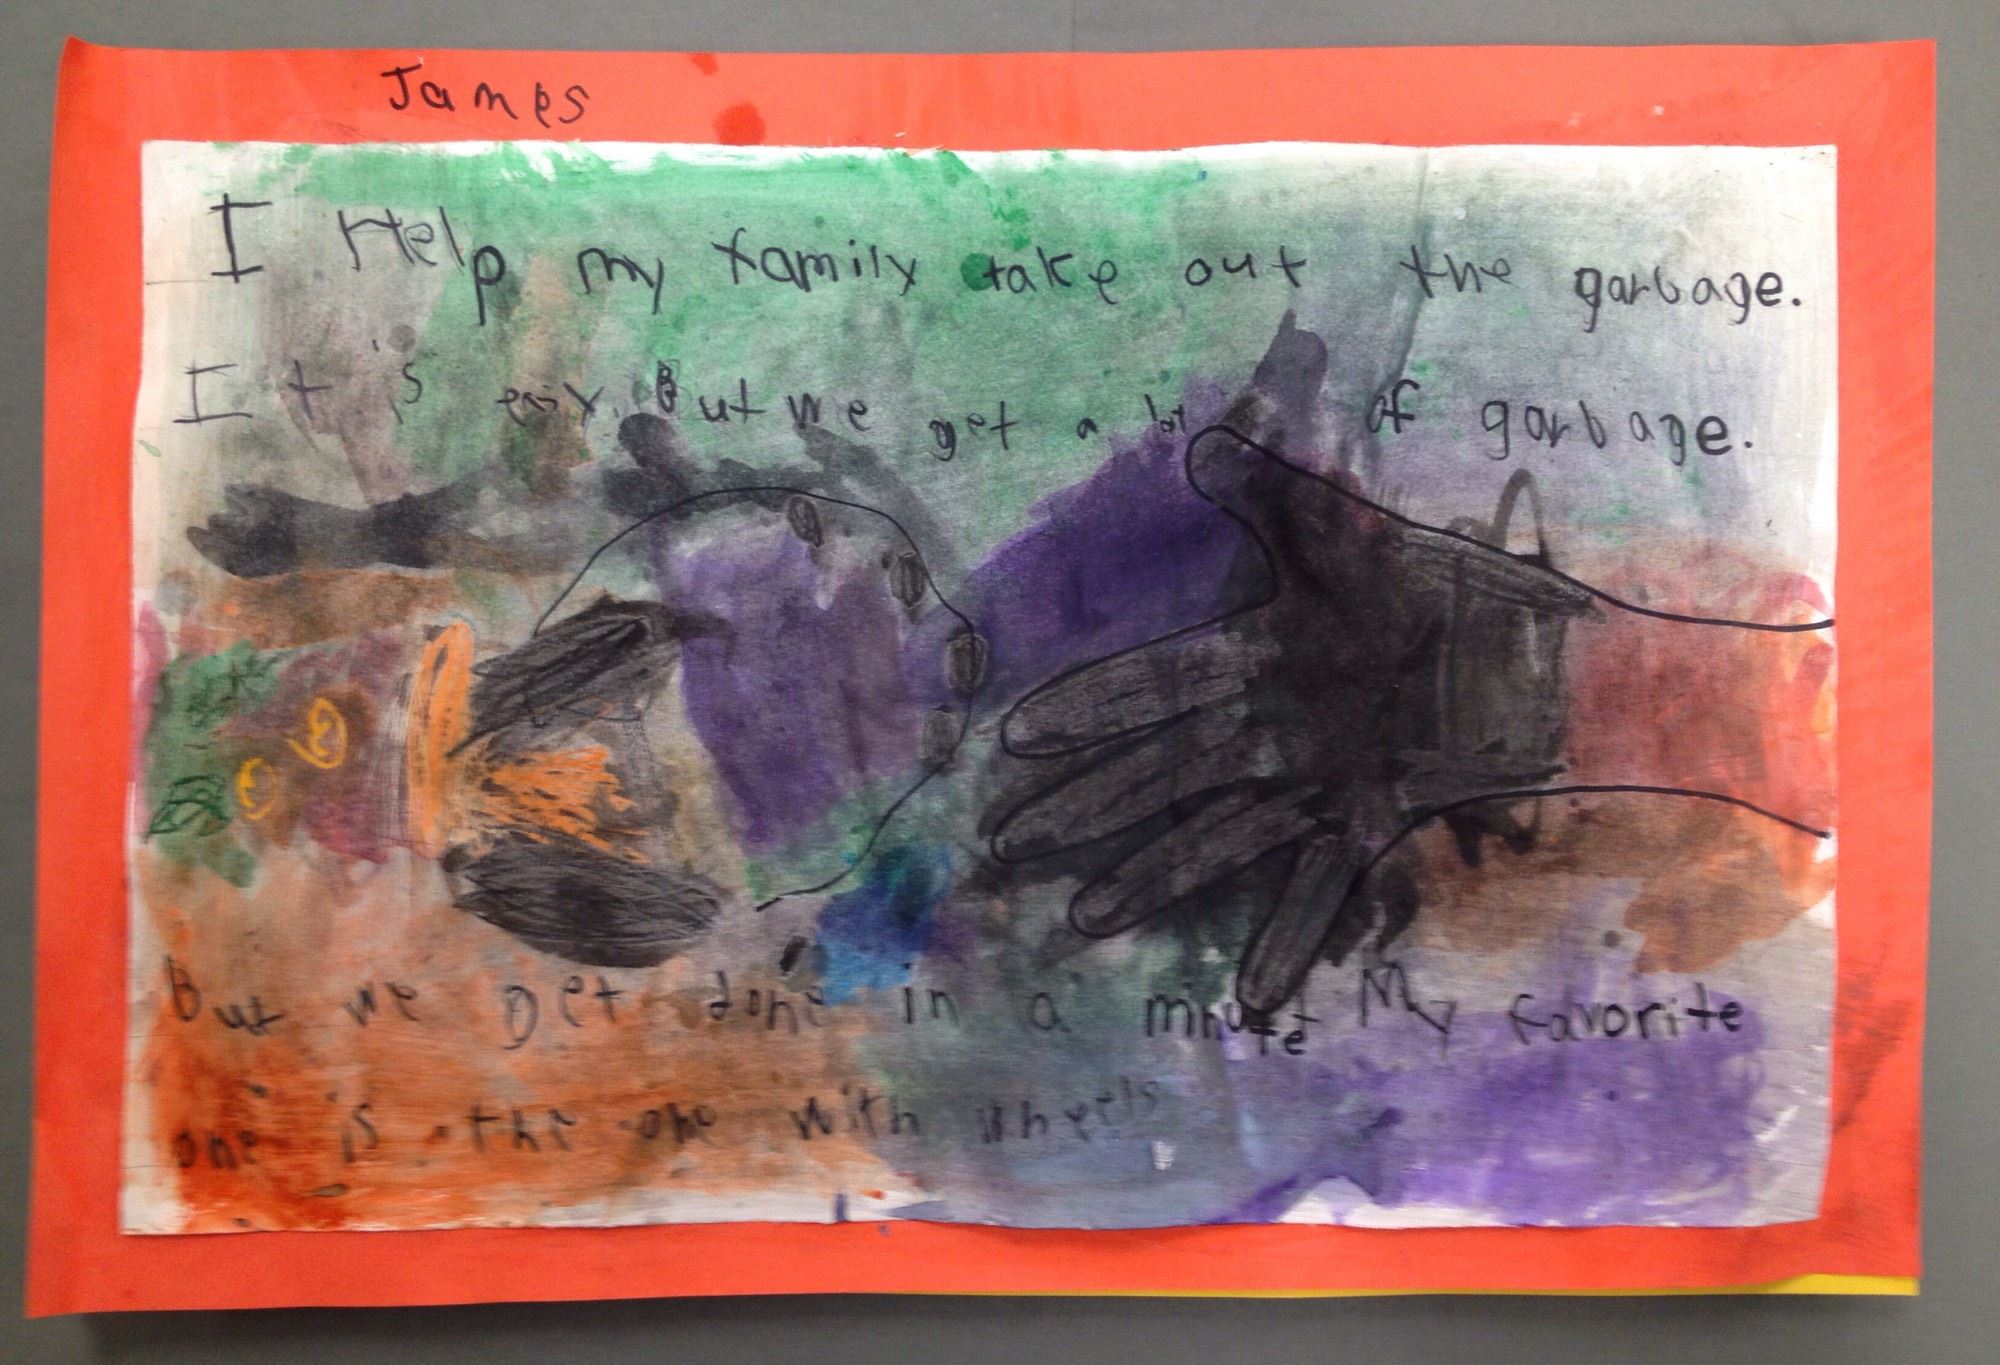 James
I Help my family take out the garbage.
It's easy. But we get a of garbage.
But we get done in a minute My favorite
one is the one with wheels